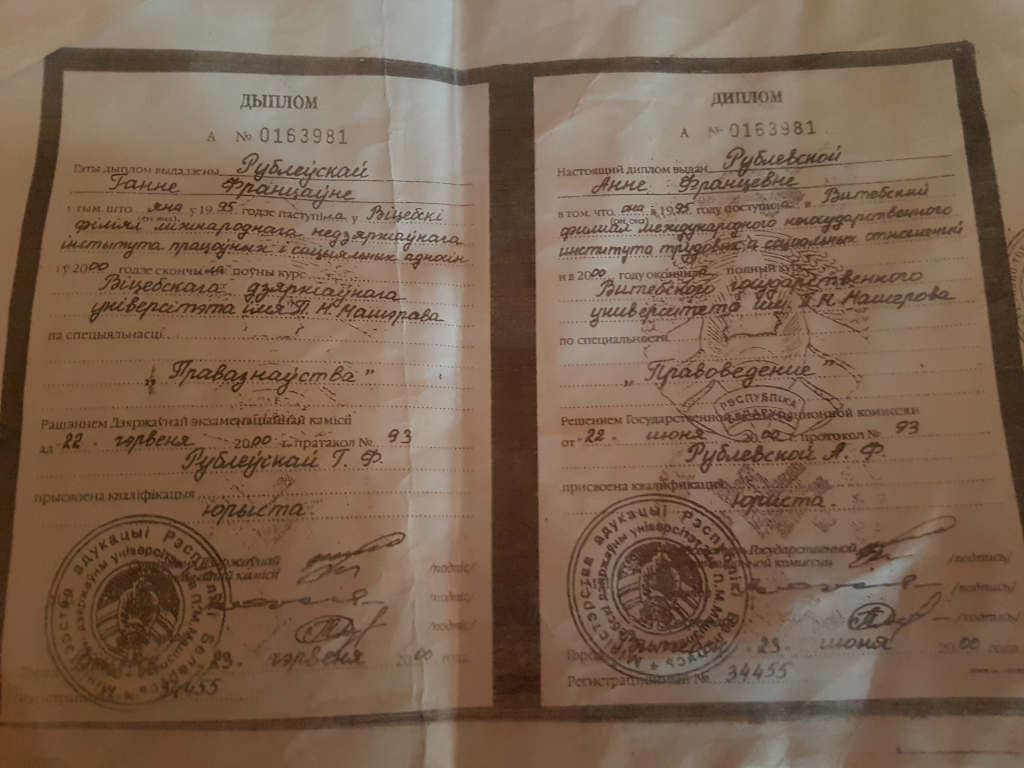 ДЫПЛОМ
А № 0163981
Гэты дыплом выдадзены Рублеўскай
Ганне Францаўне
у тым, што яна у 1995 годзе паступіла у Віцебскі
(он, она)
філіял міжнароднага недзяржаўнага
інстытута працоўных і сацыяльных адносін
і у 2000 годзе скончыла поўны курс
Віцебскага дзяржаўнага
універсітэта імя П. М. Машэрава
па спецыяльнасці
„Правазнаўства”
Рашэннем Дзяржаўнай экзаменацыйнай камісіі
ад 22. чэрвеня 2000 г. пратакол № 93
Рублеўскай Г. Ф.
прысвоена кваліфікацыя
юрыста.
Дзяржаўнай
камісіі /подпіс/
/подпіс/
/подпіс/
23. чэрвеня 2000 года
34455
ДИПЛОМ
А № 0163981
Настоящий диплом выдан Рублевской
Анне Францевне
в том, что она в 1995 году поступила в Витебский
(он, она)
филиал международного негосударственного
института трудовых и социальных отношений
и в 2000 году окончила полный курс
Витебского государственного
университета им. П. М. Машерова
по специальности
„Правоведение”
РЭСПУБЛІКА
БЕЛАРУСЬ
Решением Государственной экзаменационной комиссии
от 22. июня 2000 г. протокол № 93
Рублевской А. Ф.
присвоена квалификация
юриста.
Председатель Государственной
экзаменационной комиссии /подпись/
/подпись/
/подпись/
Город Витебск 23. июня 2000 года
Регистрационный № 34455